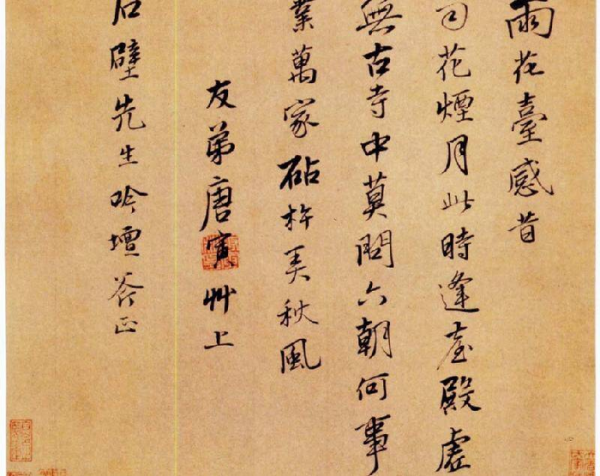 雨花臺感昔
花煙月此時逢臺殿虛
無古寺中莫問六朝何事
業萬家砧杵秋風
友弟唐寅艸上
石壁先生吟壇斧正